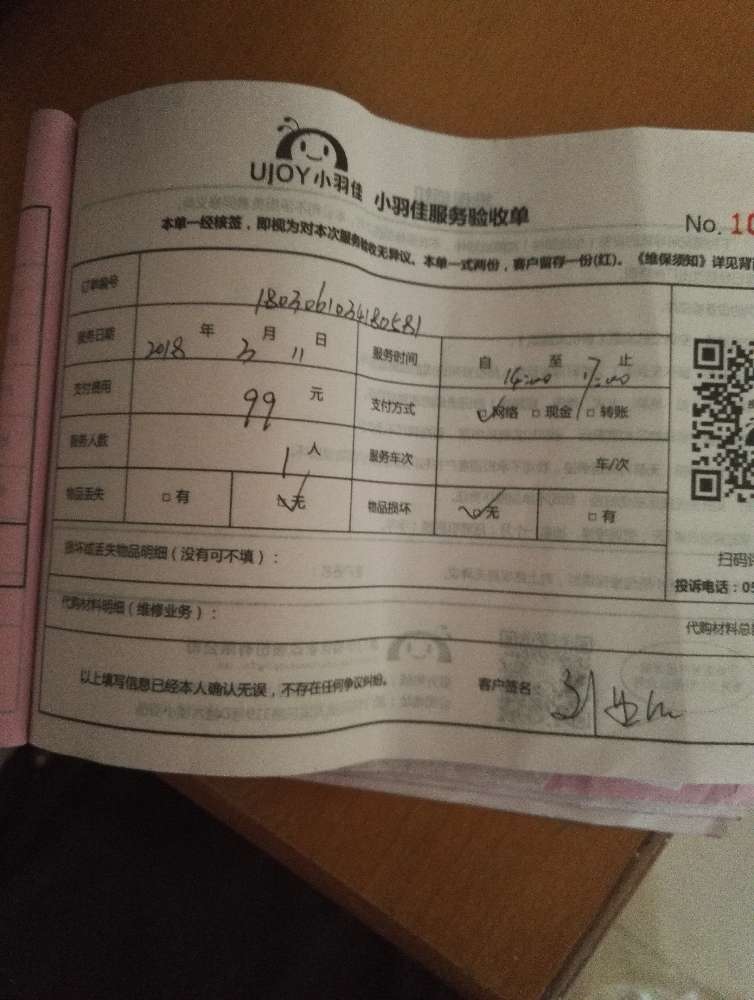 UJOY小羽佳 小羽佳服务验收单
No. 10
本单一经核签，即视为对本次服务验收无异议。本单一式两份，客户留存一份(红)。《维保须知》详见背
订单编号 1803061034180581
服务日期 2018 年 3 月 11 日 服务时间 自 14:00 至 17:00 止
支付费用 99 元 支付方式 网络 现金 转账
服务人数 1 人 服务车次 车/次
物品丢失 有 无 物品损坏 无 有
损坏或丢失物品明细（没有可不填）：
扫码评
投诉电话：05
代购材料明细（维修业务）：
代购材料总
以上填写信息已经本人确认无误，不存在任何争议纠纷。 客户签名：